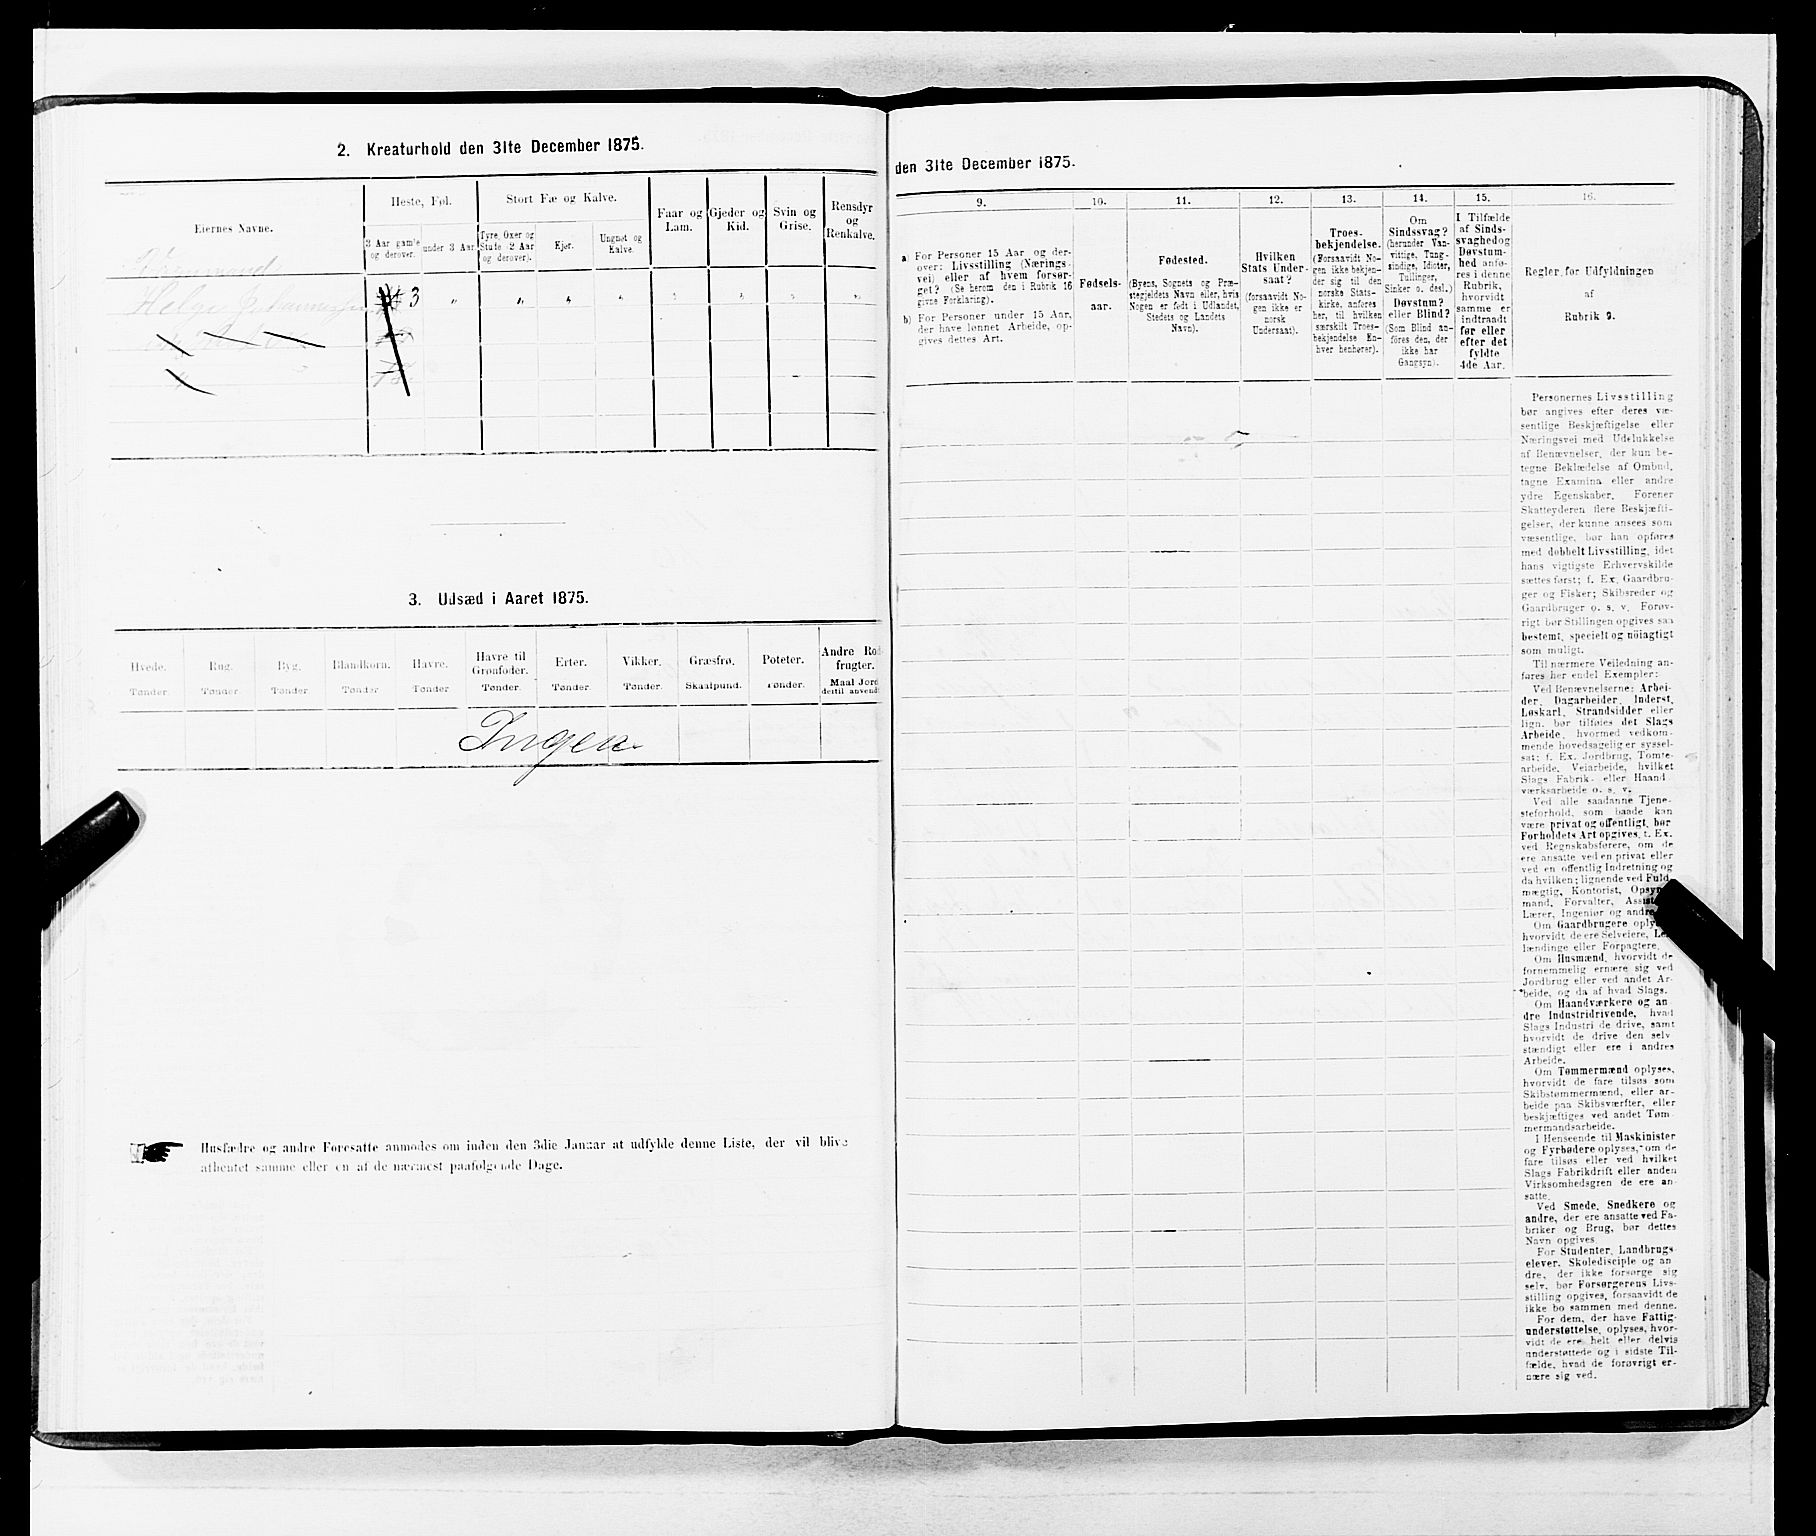 2. Kreaturhold den 31te December 1875.
Eiernes Navne.
Heste, Føl.
Stort Fæ og Kalve.
Faar og Lam.
Gjeder og Kid.
Svin og Grise.
Rensdyr og Renkalve.
3 Aar gamle og derover.
under 3 Aar.
Tyre, Oxer og Stude (2 Aar og derover).
Kjør.
Ungnøt og Kalve.
Helge
3 " " " " " " " "
3. Udsæd i Aaret 1875.
Hvede. Rug. Byg. Blandkorn. Havre. Havre til Grønfoder. Erter. Vikker. Græsfrø. Poteter. Andre Rodfrugter.
Tønder. Tønder. Tønder. Tønder Tønder. Tønder. Tønder. Tønder. Skaalpund. Tønder. Maal Jord dertil anvendt
Ingen
Husfædre og andre Foresatte anmodes om inden den 3die Januar at udfylde denne Liste, der vil blive
afhentet samme eller en af de nærmest paafølgende Dage.
den 31te December 1875.
9. 10. 11. 12. 13. 14. 15. 16.
a) For Personer 15 Aar og derover: Livsstilling (Næringsvei) eller af hvem forsørget? (Se herom den i Rubrik 16 givne Forklaring).
b) For Personer under 15 Aar, der have lønnet Arbeide, opgives dettes Art.
Fødselsaar.
Fødested.
(Byens, Sognets og Præstegjeldets Navn eller, hvis Nogen er født i Udlandet, Stedets og Landets Navn).
Hvilken Stats Undersaat?
(forsaavidt Nogen ikke er norsk Undersaat).
Troesbekjendelse.
(Forsaavidt Nogen ikke bekjender sig til den norske Statskirke, anføres her, til hvilken særskilt Troesbekjendelse Enhver henhører).
Om Sindssvag? (herunder Vanvittige, Tungsindige, Idioter, Tullinger, Sinker o. desl.) Døvstum? eller Blind? (Som Blind anføres den, der ikke har Gangsyn).
I Tilfælde af Sindssvaghed og Døvstumhed anføres i denne Rubrik, hvorvidt samme er indtraadt før eller efter det fyldte 4de Aar.
Regler for Udfyldningen
af
Rubrik 9.
Personernes Livsstilling
bør angives efter deres væ-
sentlige Beskjæftigelse eller
Næringsvei med Udelukkelse
af Benævnelser, der kun be-
tegne Beklædelse af Ombud,
tagne Examina eller andre
ydre Egenskaber. Forener
Skatteyderen flere Beskjæfti-
gelser, der kunne ansees som
væsentlige, bør han opføres
med dobbelt Livsstilling, idet
hans vigtigste Erhvervskilde
sættes først; f. Ex. Gaardbru-
ger og Fisker; Skibsreder og
Gaardbruger o. s. v. Forøv-
rigt bør Stillingen opgives saa
bestemt, specielt og nöiagtigt
som muligt.
Til nærmere Veiledning an-
føres her endel Exempler:
Ved Benævnelserne: Arbei-
der, Dagarbeider, Inderst,
Løskarl, Strandsidder eller
lign. bør tilføies det Slags
Arbeide, hvormed vedkom-
mende hovedsagelig er syssel-
sat; f. Ex. Jordbrug, Tomte-
arbeide, Veiarbeide, hvilket
Slags Fabrik- eller Haand-
værksarbeide o. s. v.
Ved alle saadanne Tjene-
steforhold, som baade kan
være privat og offentligt, bør
Forholdets Art opgives, t. Ex.
ved Regnskabsførere, om de
ere ansatte ved en privat eller
ved en offentlig Indretning og
da hvilken; lignende ved Fuld-
mægtig, Kontorist, Opsyns-
mand, Forvalter, Assist
Lærer, Ingeniør og andre
Om Gaardbrugere oply
hvorvidt de ere Selveiere, Lei-
lændinge eller Forpagtere.
Om Husmænd, hvorvidt de
fornemmelig ernære sig ved
Jordbrug eller ved andet Ar-
beide, og da af hvad Slags.
Om Haandværkere og an-
dre Industridrivende, hvad
Slags Industri de drive, samt
hvorvidt de drive den selv-
stændigt eller ere i andres
Arbeide.
Om Tømmermænd oplyses,
hvorvidt de fare tilsøs som
Skibstømmermænd, eller ar-
beide paa Skibsværfter, eller
beskjæftiges ved andet Tøm-
mermandsarbeide.
I Henseende til Maskinister
og Fyrbødere oplyses, om de
fare tilsøs eller ved hvilket
Slags Fabrikdrift eller anden
Virksomhedsgren de ere an-
satte.
Ved Smede, Snedkere og
andre, der ere ansatte ved Fa-
briker og Brug, bør dettes
Navn opgives.
For Studenter, Landbrugs-
elever, Skoledisciple og an-
dre, der ikke forsørge sig
selv, bør Forsørgerens Livs-
stilling opgives, forsaavidt de
ikke bo sammen med denne.
For dem, der have Fattig-
understøttelse, oplyses, hvor-
vidt de ere helt eller delvis
understøttede og i sidste Til-
fælde, hvad de forøvrigt er-
nære sig ved.